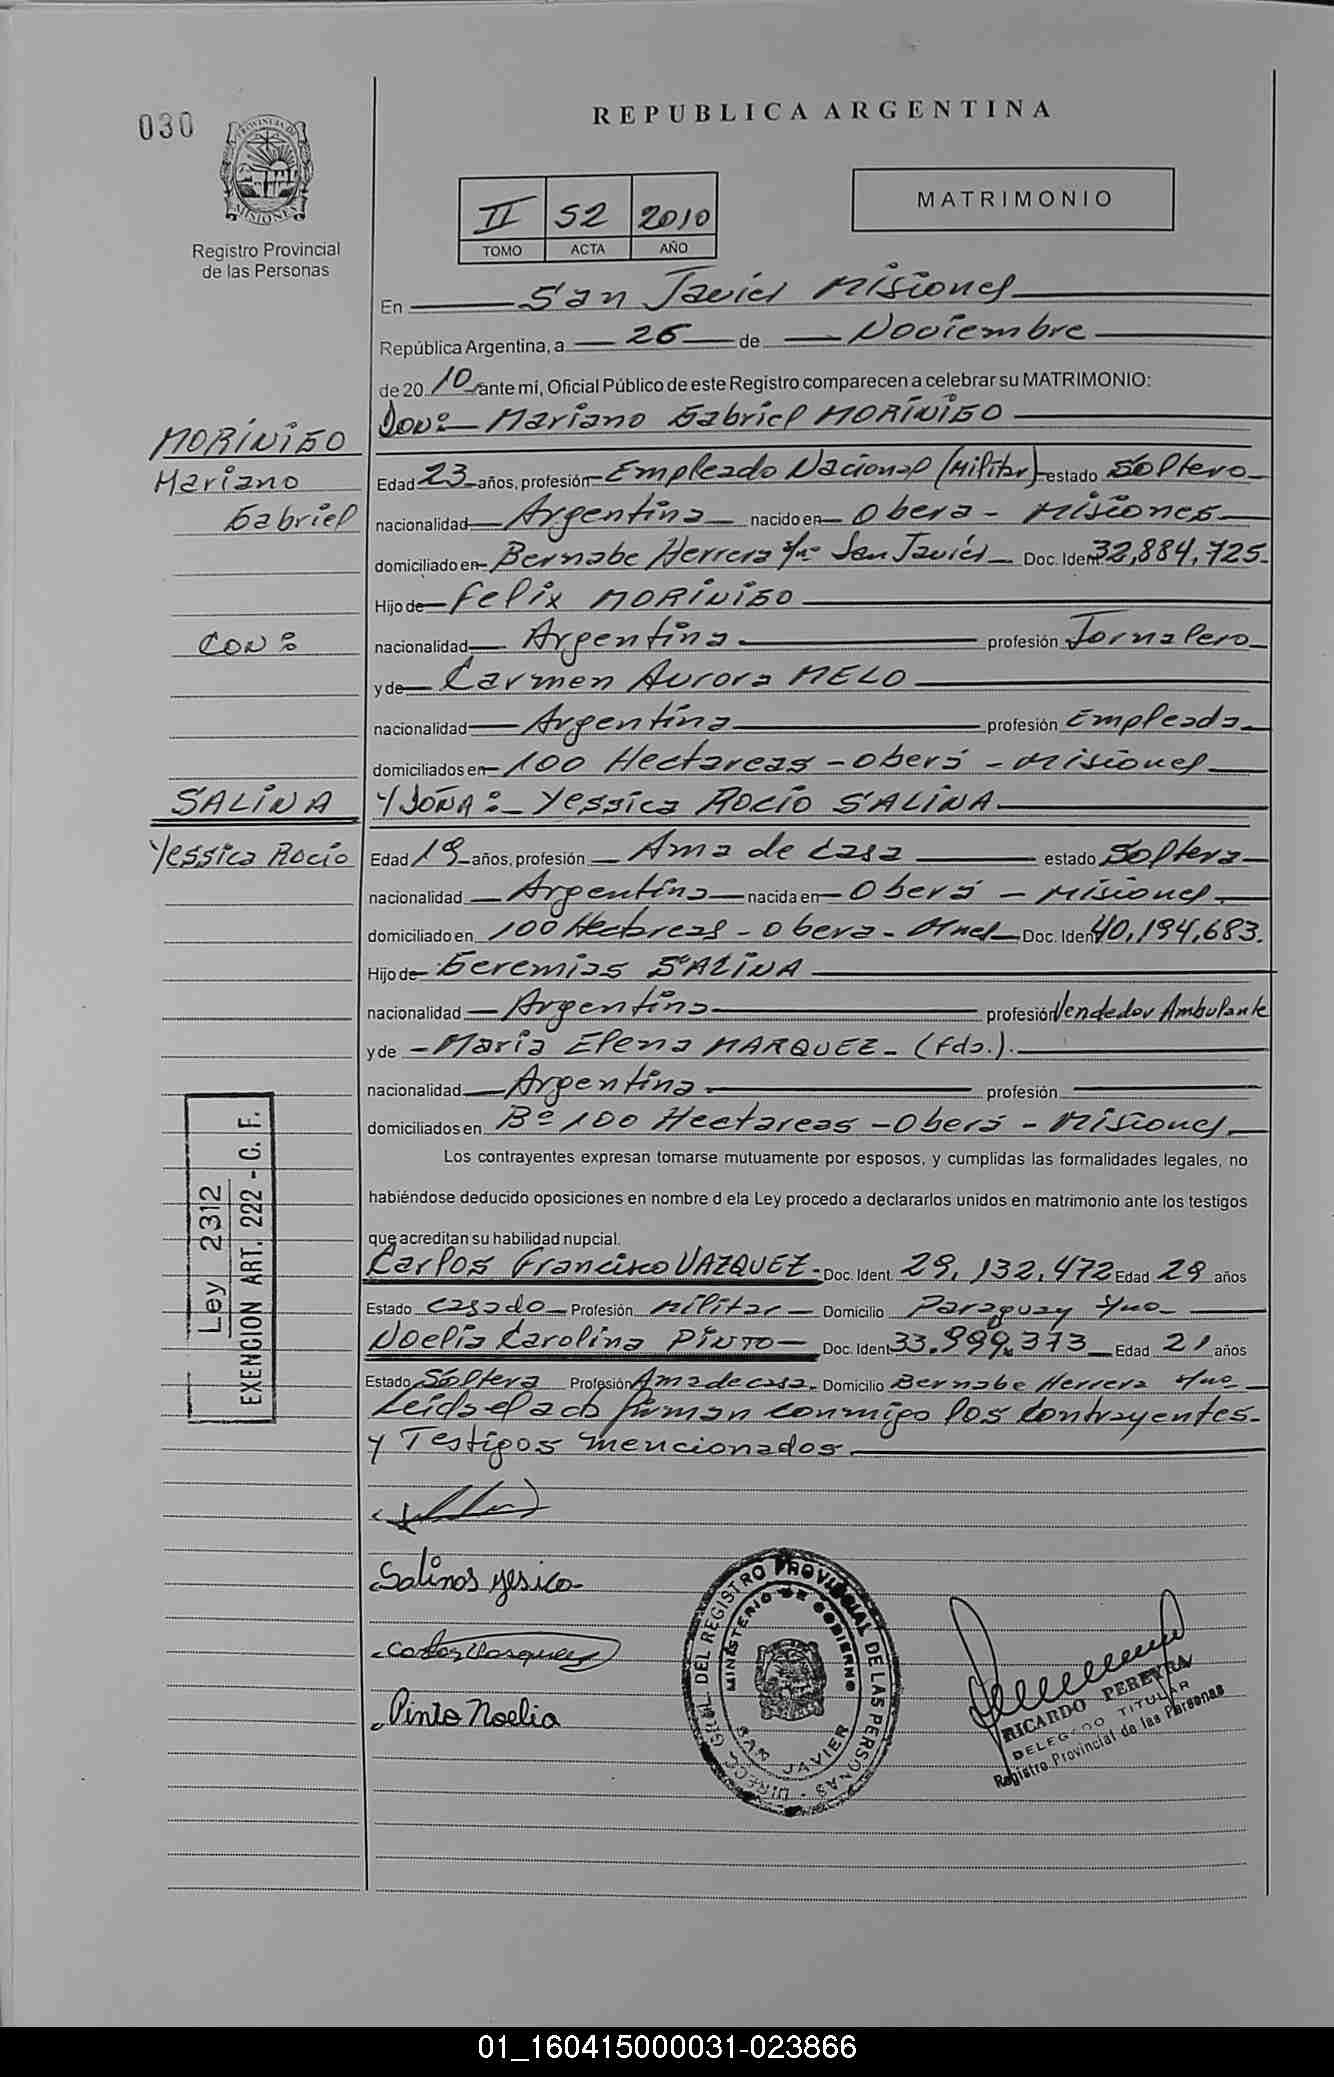 030
PROVINCIA DE
MISIONES
Registro Provincial
de las Personas
REPUBLICA ARGENTINA
MATRIMONIO
II 52 2010
TOMO ACTA AÑO
En San Javier Misiones
República Argentina, a 26 de Noviembre
de 20 10 ante mí, Oficial Público de este Registro comparecen a celebrar su MATRIMONIO:
DON: Mariano Gabriel MORÍNIGO
MORÍNIGO
Mariano
Gabriel
Edad 23 años, profesión Empleado Nacional (Militar) estado Soltero
nacionalidad Argentina nacido en Obera - Misiones
domiciliado en Bernabe Herrera s/nº San Javier Doc. Ident 32,884,725.
Hijo de Felix MORINIGO
CON:
nacionalidad Argentina profesión Jornalero
y de Carmen Aurora MELO
nacionalidad Argentina profesión Empleada
domiciliados en 100 Hectareas - Oberá - Misiones
SALINA
Y DOÑA: Yessica ROCÍO SALINA
Yessica Rocío
Edad 19 años, profesión Ama de Casa estado Soltera
nacionalidad Argentina nacida en Oberá - Misiones
domiciliado en 100 Hectareas - Obera - Mnes Doc. Ident 40,194,683.
Hijo de Geremias SALINA
nacionalidad Argentina profesión Vendedor Ambulante
y de Maria Elena MARQUEZ - (Fda.).
nacionalidad Argentina profesión
domiciliados en Bº 100 Hectareas - Oberá - Misiones
Los contrayentes expresan tomarse mutuamente por esposos, y cumplidas las formalidades legales, no
habiéndose deducido oposiciones en nombre d ela Ley procedo a declararlos unidos en matrimonio ante los testigos
que acreditan su habilidad nupcial.
Carlos Francisco VAZQUEZ - Doc. Ident. 29,132,472 Edad 29 años
Estado casado Profesión Militar Domicilio Paraguay s/nº
Noelia Carolina PINTO Doc. Ident 33.999.373 Edad 21 años
Estado Soltera Profesión Ama de casa Domicilio Bernabe Herrera s/nº
Leida el acta firman conmigo los Contrayentes
y Testigos mencionados
Ley 2312
EXENCION ART. 222 - C. F.
Salinas Yesica
Carlos Vasquez
Pinto Noelia
DIRECC. GRAL. DEL REGISTRO PROVINCIAL DE LAS PERSONAS
MINISTERIO DE GOBIERNO
SAN JAVIER
RICARDO PEREYRA
DELEGADO TITULAR
Registro Provincial de las Personas
01_160415000031-023866